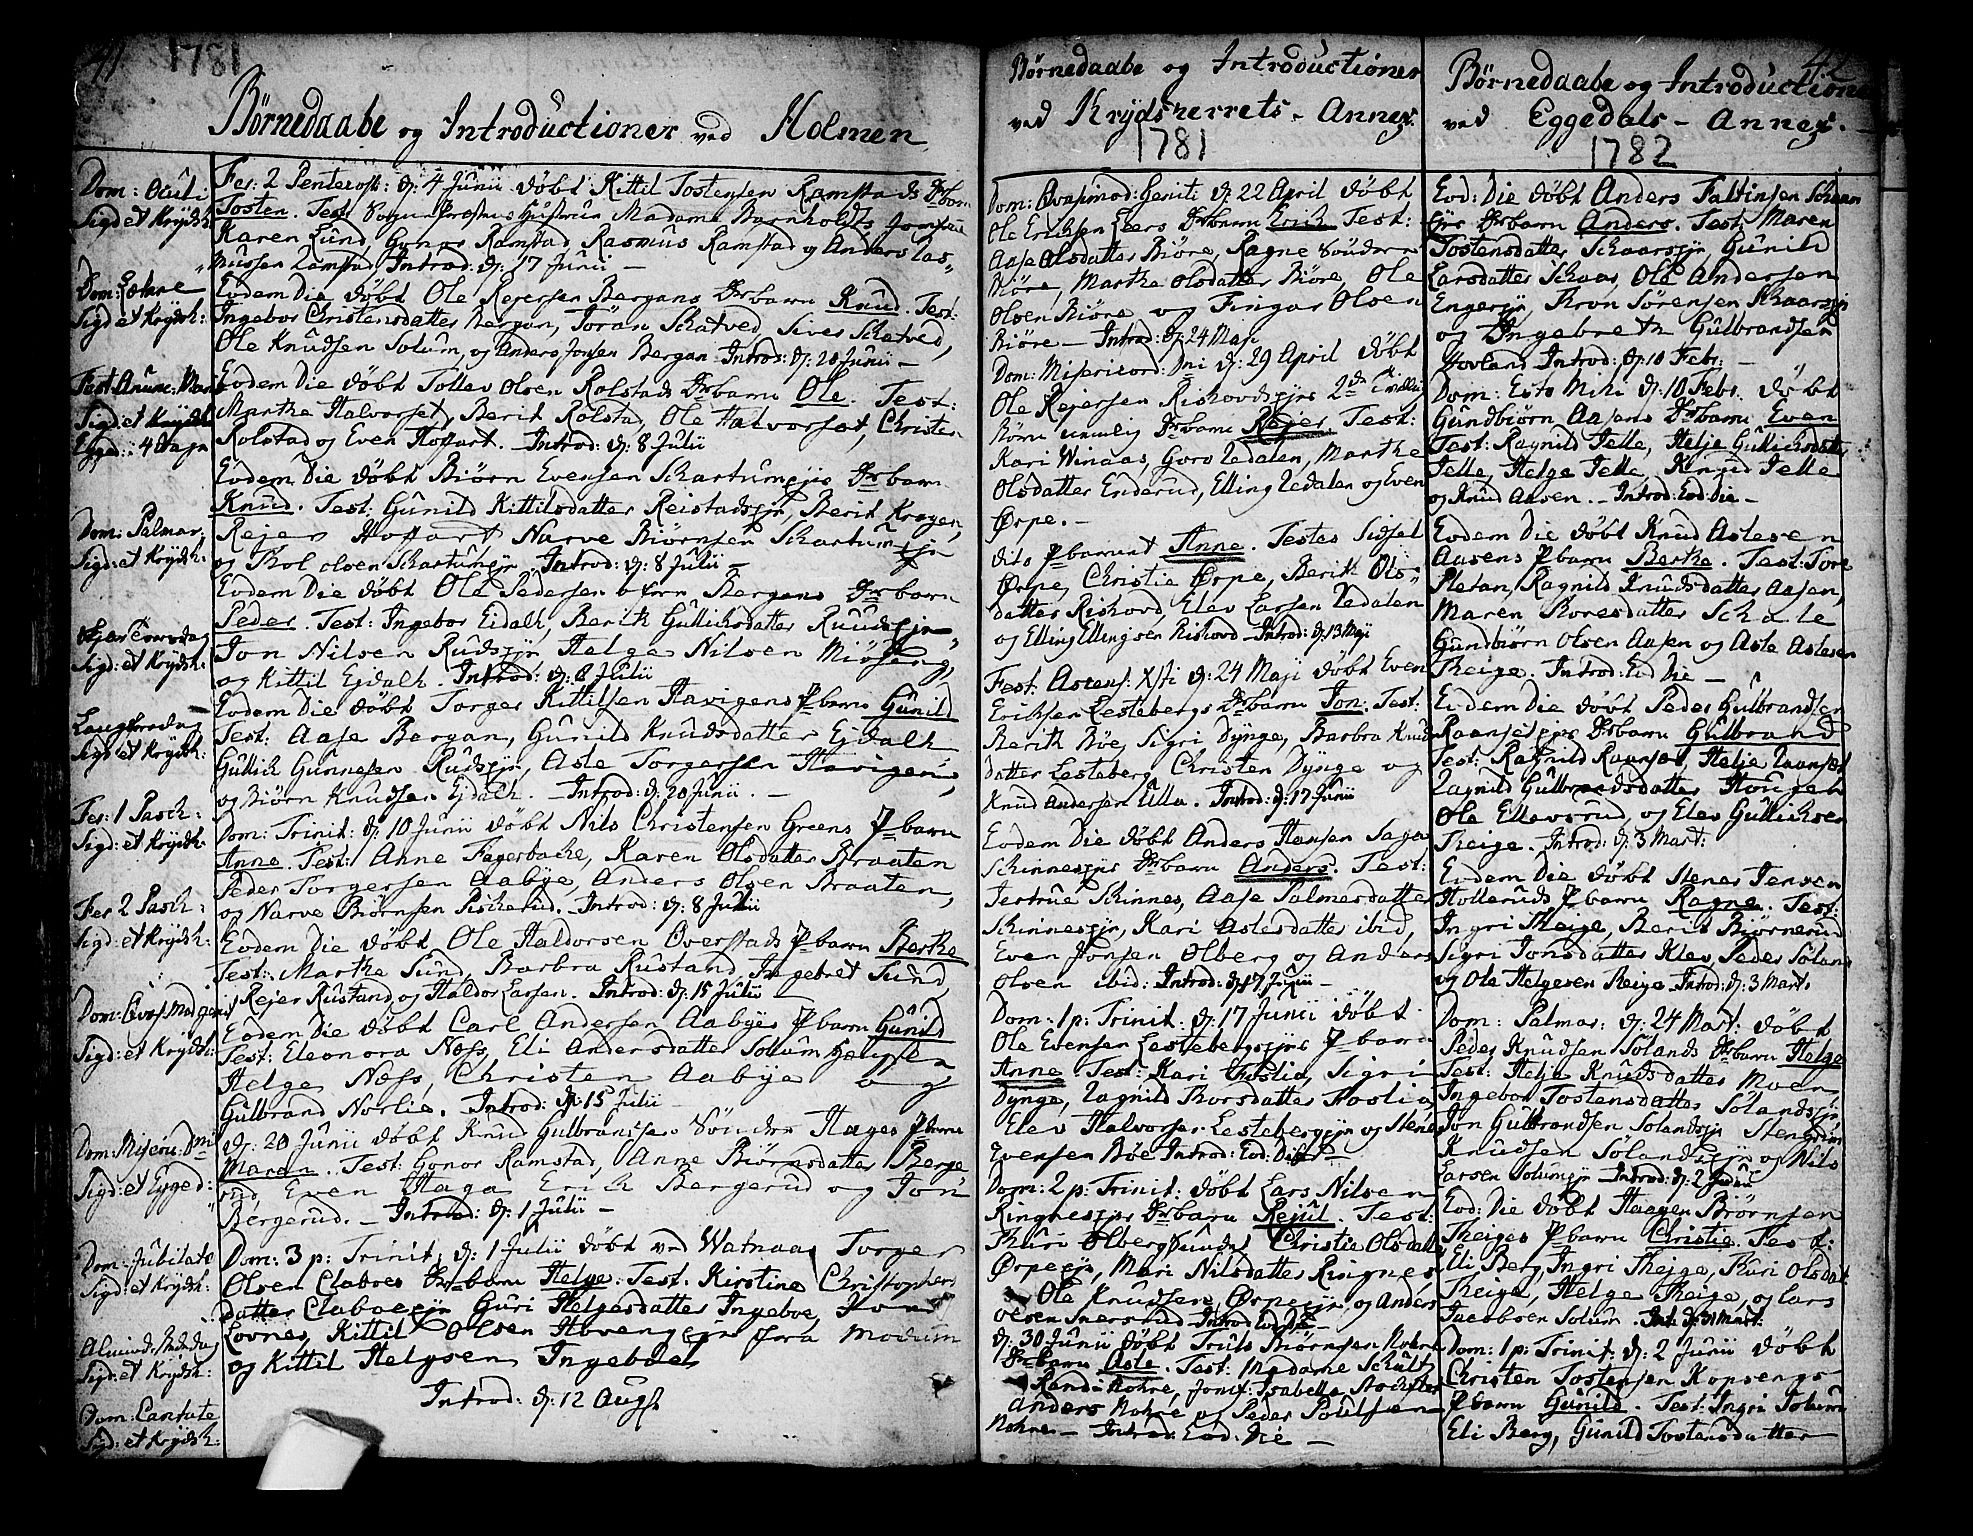 41 1781
Børnedaabe og Introductioner ved Holmen
Dom: Oculi
Sigd: et Krydsh:
Dom: Lætare
Sigd: et Krydsh:
Fest: Anunc: Mari
Sigd: et Krydsh
Egged: 4 Dage
Dom: Palmar,
Sigd: et Krydsh:
Skjær Torsdag
Sigd: et Krydsh:
Langfredag
Sigd: et Krydsh:
Fer: 1 Pasch:
Sigd: et Krydsh:
Fer 2 Pasch:
Sigd: et Krydsh:
Dom: Qvasimodogenit
Sigd: et Krydsh:
Dom: Misericord: Dni
Sigd: et Egged:
Dom: Jubilate
Sigd: et Krydsh:
Almind: Bededag
Sigd: et Krydsh:
Dom: Cantate
Sigd: et Krydsh:
Fer: 2 Pentecost: d: 4 Junii døbt Kittil Tostensen Ramstads Drbarn
Tosten. Test: Madame Barnholdt, Jomfrue
Karen Lund, Gonor Ramstad, Rasmus Ramstad og Anders Ras„
mussen Ramstad Introd: d: 17 Junii —
Eodem Die døbt Ole Rejersen Bergans Drbarn Knud. Test:
Ingebor Christensdatter Bergan, Jøran Schatved, Siver Schatved,
Ole Knudsen Solum, og Anders Jonsen Bergan. Introd: d: 20 Junii —
Eodem Die døbt Tollev Olsen Rolstads Drbarn Ole. Test:
Marthe Halvorset, Berit Rolstad, Ole Halvorset, Christen
Rolstad og Even Hoffart. — Introd: d: 8 Julii
Eodem Die døbt Biørn Evensen Schartumejes Drbarn
Knud. Test: Gunild Kittilsdatter Reistadejr, Berit Krogen,
Rejer Hoffart Narve Biørnsen Schartum ejr
og Thol olsen Schartumejr. Introd: d: 8 Julii —
Eodem Die døbt Ole Pedersen øfvre Bergans Drbarn
Peder. Test: Ingebor Eidalh, Berith Gullichsdatter Ruudsejr
Jon Nilsen Rudsejr Helge Nilsen Miøseng,
og Kittil Ejdalh. Introd: d: 8 Julii
Eodem Die døbt Torger Kittilsen Havigens Pbarn Gunild
Test: Aase Bergan, Gunild Knudsdatter Ejdalh
Gullich Gunnersen Rudsejr, Asle Torgersen Havigen,
og Biørn Knudsen Ejdalh. — Introd: d: 20 Junii. —
Dom: Trinit: d: 10 Junii døbt Nils Christensen Greens Pbarn
Anne. Test: Anne Fagerbacke, Karen Olsdatter Braaten
Peder Torgersen Aabye, Anders Olsen Braaten,
og Narve Biørnsen Pischerud. — Introd: d: 8 Julii
Eodem Die døbt Ole Haldorsen Overstads Pbarn Berthe
Test: Marthe Sund, Barbra Rustand, Ingebret Sund,
Rejer Rustand, og Haldor Larsen. Introd: d: 15 Julii
Eodem Die døbt Carl Andersen Aabyes Pbarn Gunild
Test: Eleonora Næss, Eli Andersdatter Solum
Helge Næss, Christen Aabye og
Gulbrand Norlie. Introd: d: 15 Julii
d: 20 Junii døbt Knud Gulbransen Sønder Hages Pbarn
Maren. Test: Gonor Ramstad, Anne Biørnsdatter Berge
rud, Even Haga Erich Bergerud og Jon
Bergerud. — Introd: d: 1 Julii —
Dom: 3 p: Trinit: d: 1 Julii døbt ved Watnaas Torger
Olsen Claboes Drbarn Helge. Test: Kirstine Christophers
datter Claboeejr Guri Helgesdatter Ingeboe,
Lovnes, Kittil Olsen fra Modum
og Kittil Helgesen Ingeboe
Introd: d: 12 Aug:
Børnedaabe og Introductioner
ved Krydsherrets-Annex.
1781
Dom: Qvasimod: Geniti d: 22 April døbt
Ole Erichsen Leers Drbarn Erich Test:
Aase Olsdatter Biøre, Ragne Sønder
Biøre, Marthe Olsdatter Biøre, Ole
Olsen Biøre og Fingar Olsen
Biøre — Introd: d: 24 Maji
Dom: Misericord: Dni d: 29 April døbt
Ole Rejersen Rishovdejes 2de Tvilling
Børn nemlig Drbarn Rejer. Test:
Kari Winaas, Goro Medalen, Marthe
Olsdatter Enderud, Elling Medalen og Even
Ørpe. —
dito Pbarnet Anne. Testes Sidsel
Ørpe, Christie Ørpe, Berit Ols„
datter Rishovd, Elev Larsen Medalen
og Elling Ellingsen Rishovd — Introd: d: 13 Maji
Fest: Ascens: Xsti d: 24 Maji døbt Even
Erichsen Lestebergs Drbarn Jon. Test:
Berith Bøe, Sigri Dynge, Barbra Knuds
datter Lesteberg, Christen Dynge og
Knud Andersen Ulla. Introd: d: 17 Junii
Eodem Die døbt Anders Hansen Saga
Schinnesejes Drbarn Anders. Test:
Jertrue Schinnes, Aase Palmersdatter
Schinnesejr, Kari Aslesdatter ibid,
Even Jonsen Olberg og Anders
Olsen ibid: Introd: d: 17 Junii —
Dom: 1 p: Trinit: d: 17 Junii døbt
Ole Evensen Lestebergejes Pbarn
Anne Test: Kari Foslie, Sigri
Dynge, Ragnild Thorsdatter Foslie,
Elev Halvorsen Lestebergejr og Stener
Evensen Bøe Introd: Eod: Die —
Dom: 2 p: Trinit: døbt Lars Nilsen
Ringnesejes Drbarn Rejul. Test:
Thuri Olberg Sundet Christie Olsdatter
Ørpeejr, Mari Nilsdatter Ringnes
Ole Knudsen Ørpeejr, og Anders
Olsen Introd: Eod: Die —
d: 30 Junii døbt Truls Biørnsen Nohre
Drbarn Asle. Test: Madame Schult
Randi Nohre, Jomf: Isabella
Anders Nohre og Peder Poulsen
Nohre — Introd: Eod: Die —
42
Børnedaabe og Introductioner
ved Eggedals-Annex. —
1782
Eod: Die døbt Anders Faltinsen Schaar
ejes Drbarn Anders. Test: Maren
Tostensdatter Schaarsejr Gunild
Larsdatter Schaar, Ole Andersen
Engerejr, Thron Sørensen Schaarsejr
og Ingebreth Gulbrandsen
Hovland Introd: d: 10 Febr: —
Dom: Esto Mihi d: 10 Febr. døbt
Gundbiørn Aasens Drbarn Even
Test: Ragnild Jelle, Helje Gullichsdatter
Jelle, Helge Jelle, Knud Jelle
og Knud Aasen. — Introd: Eod: Die —
Eodem Die døbt Knud Aslesen
Aasens Pbarn Berthe. Test: Tore
Pletan, Ragnild Knudsdatter Aasen,
Maren Toresdatter Schale
Gundbiørn Olsen Aasen og Asle Aslesen
Theige. Introd: Eod Die —
Eodem Die døbt Peder Gulbrandsen
Raansetejes Drbarn Gulbrand
Test: Ragnild Raanset, Helje Raanset
Ragnild Gulbrandsdatter Hougen
Ole Ellevsrud, og Elev Gullichsen
Theige. Introd: d: 3 Mart:
Eodem Die døbt Stener Jensen
Holleruds Pbarn Ragne. Test:
Ingri Theige, Berit Biørnerud
Sigri Jonsdatter Klev, Peder Søland
og Ole Helgesen Theige Introd: d: 3 Mart:
Dom: Palmar: d: 24 Mart: døbt
Peder Knudsen Sølands Drbarn Helge
Test: Helje Knudsdatter Moen,
Ingebor Tostensdatter Sølandsejr
Jon Gulbrandsen Sølandsejr Stengrim
Knudsen Sølandsejr og Nils
Larsen Solumejr Introd: d: 2 Junii
Eod: Die døbt Haagen Biørnsen
Theiges Pbarn Christie. Test:
Eli Berg, Ingri Theige, Thuri Olsdatter
Theige, Helge Theige, og Lars
Jacobsen Solum. Int: d: 31 Mart:
Dom: 1 p: Trinit: d: 2 Junii døbt
Christen Tostensen Kopsengs
Pbarn Gunild. Test: Ingri Solum
Eli Berg, Gunild Tostensdatter